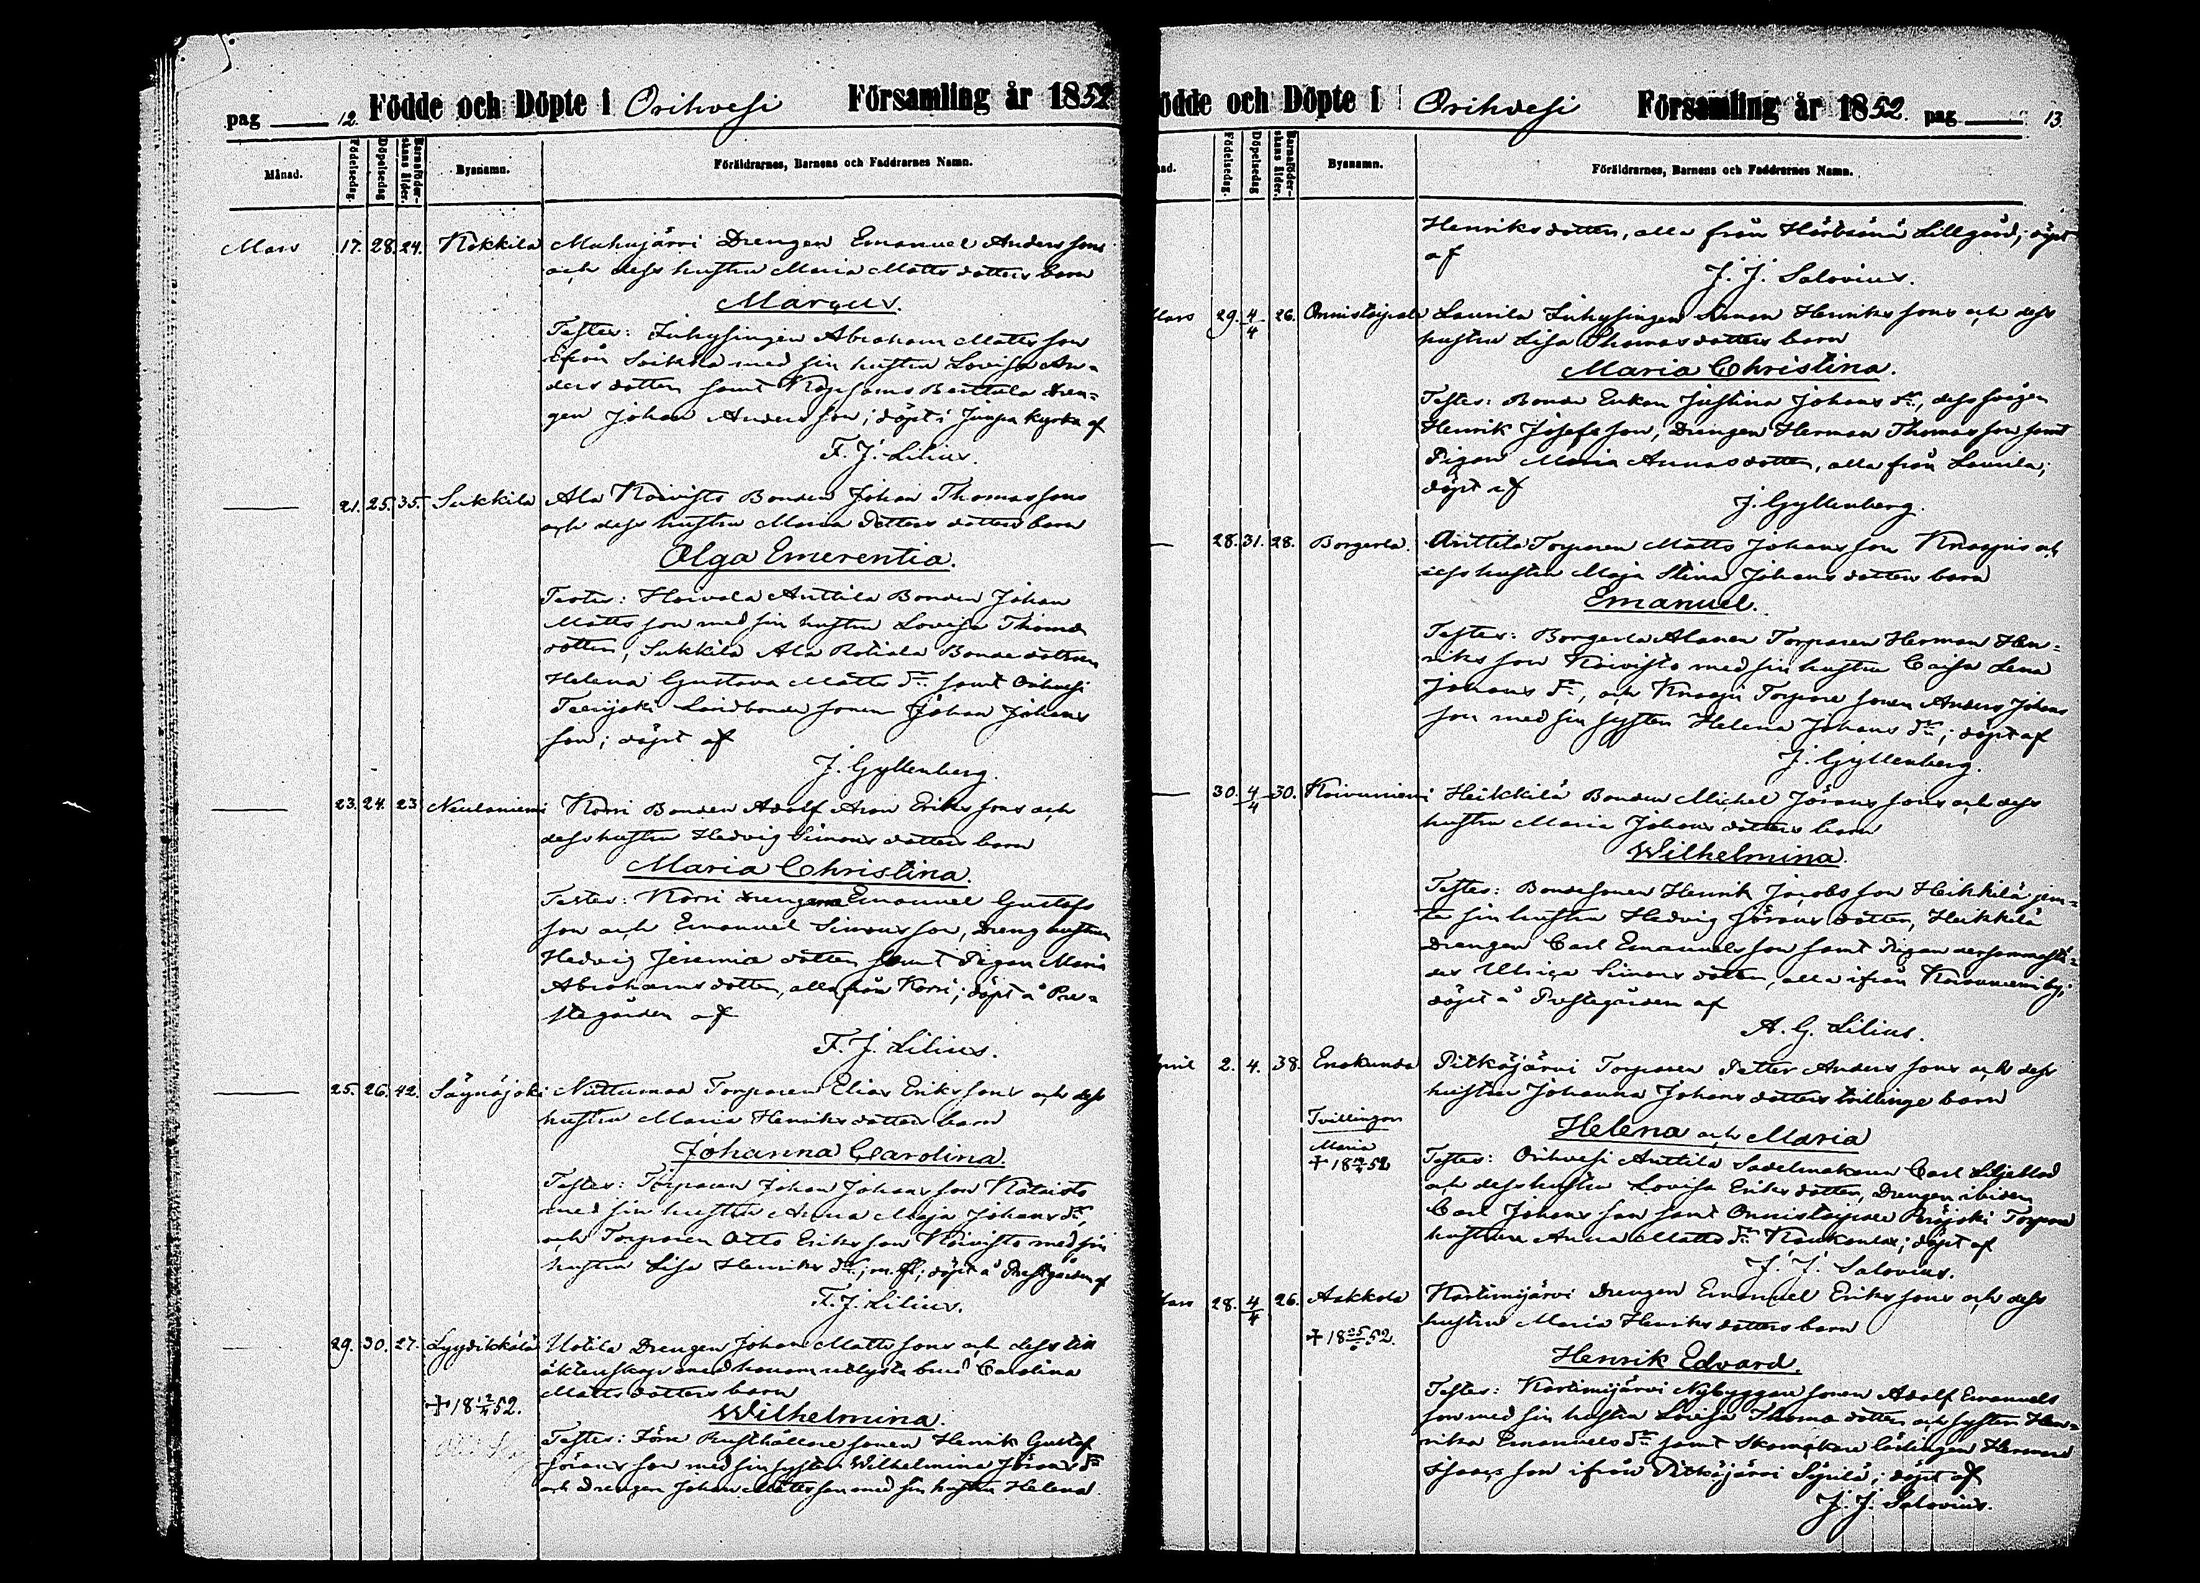 pag 12. Födde och Döpte i Orihvesi Församling år 1852
Månad. Födelsedag. Döpelsedag Barnaföder-skans ålder. Bysnamn. Föräldrarnes, Barnens och Faddrarnes Namn.
Mars 17. 28. 24. Kokkila Muhujärvi Drengen Emanuel Anders sons
och dess hustru Maria Matts dotters barn
Marcus.
Testes: Inhysingen Abraham Matts son
ifrån Soikka med sin hustru Lovisa An-
ders dotter samt Berttula dren-
gen Johan Anders son; döpt i Juupa kyrka af
F. J. Lilius.
21. 25. 35. Sukkila Ala Koivisto Bonden Johan Thomas sons
och dess hustru Maria Petters dotters barn
Olga Emerentia.
Testes: Hoivala Anttila Bonden Johan
Matts son med sin hustru Lovisa Thomæ
dotter, Sukkila Ala Rotiala Bonde dottren
Helena Gustava Matts dr samt Orihvesi
Teerijoki Landbonde sonen Johan Johans
son; döpt af
J. Gyllenberg.
23. 24. 23 Neulaniemi Korri Bonden Adolf Aron Eriks sons och
dess hustru Hedvig Simons dotters barn
Maria Christina.
Testes: Korri drengarne Emanuel Gustafs
son och Emanuel Simons son, Dreng hustrun
Hedvig Jeremiæ dotter samt Pigan Maria
Abrahams dotter, alla från Korri; döpt å Pre-
stegården af
F. J. Lilius.
25. 26. 42. Säynäjoki Niittumaa Torparen Elias Eriks sons och dess
hustru Maria Henriks dotters barn
Johanna Carolina.
Testes: Torparen Johan Johans son Kataisto
med sin hustru Anna Maja Johans dr,
och Torparen Otto Eriks son Koivisto med sin
hustru Lisa Henriks dr, m. fl.; döpt å Prestgården af
F. J. Lilius.
29. 30. 27. Lyydikkälä Uotila Drengen Johan Matts sons och dess till
äktenskap med honom utlysta brud Carolina
Matts dotters barn
+ 18 12/4 52.
Wilhelmina.
Testes: Förre Rusthållare sonen Henrik Gustaf
Jörans son med sin syster Wilhelmina Jörans dr
och Drengen Johan Matts son med sin hustru Helena
Födde och Döpte i Orihvesi Församling år 1852. pag 13.
Födelsedag. Döpelsedag Barnaföder-skans ålder. Bysnamn. Föräldrarnes, Barnens och Faddrarnes Namn.
Henriks dotter, alla från Lillgård; döpt
af
J. J. Salovius.
Mars 29. 4/4 26. Onnistaipale Laurila Inhysingen Simon Henriks sons och dess
hustru Lisa Thomas dotters barn
Maria Christina.
Testes: Bonde Enkan Justina Johans dr, dess svågen
Henrik Josefs son, Drengen Herman Thomas son samt
Pigan Maria Annas dotter, alla från Laurila;
döpt af
J. Gyllenberg.
28. 31. 28. Borgerla. Anttila Torparen Matts Johans son Knaapis och
dess hustru Maja Stina Johans dotters barn
Emanuel.
Testes: Borgerla Alanen Torparen Herman Hen-
riks son Koivisto med sin hustru Caisa Lena
Johans dr, och Knaapi Torpare sonen Anders Johans
son med sin syster Helena Johans dr; döpt af
J. Gyllenberg.
30. 4/4 30. Koivuniemi Heikkilä Bonden Michel Jörans sons och dess
hustru Maria Johans dotters barn
Wilhelmina.
Testes: Bondesonen Henrik Jacobs son Heikkilä jem-
te sin hustru Hedvig Jörans dotter, Heikkilä
Drengen Carl Emanuels son samt Pigan dersammastä-
des Ulrica Simons dotter, alla ifrån Koivuniemi by;
döpt å Prestegården af
A. G. Lilius.
April 2. 4. 38. Enokunda Pitkäjärvi Torparen Petter Anders sons och dess
hustru Johanna Johans dotters tvillinge barn
Tvillingar
Helena och Maria
Maria
+ 18 52
Testes: Orihvesi Anttila Sadelmakaren Carl Liljeblad
och dess hustru Lovisa Eriks dotter, Drengen ibidem
Carl Johans son samt Onnistaipale Torpare
hustrun Anna Matts dr; döpt af
J. J. Salovius.
Mars 28. 4/4 26. Aakkola Kortimijärvi Drengen Emanuel Eriks sons och dess
hustru Maria Henriks dotters barn
+ 18 52.
Henrik Edvard.
Testes: Kortimijärvi Nybyggare sonen Adolf Emanuels
son med sin hustru Lovisa Thomæ dotter och syster Hen-
rika Emanuels dr samt Skomakare lärlingen Herman
son ifrån Pitkäjärvi; döpt af
J. J. Salovius.